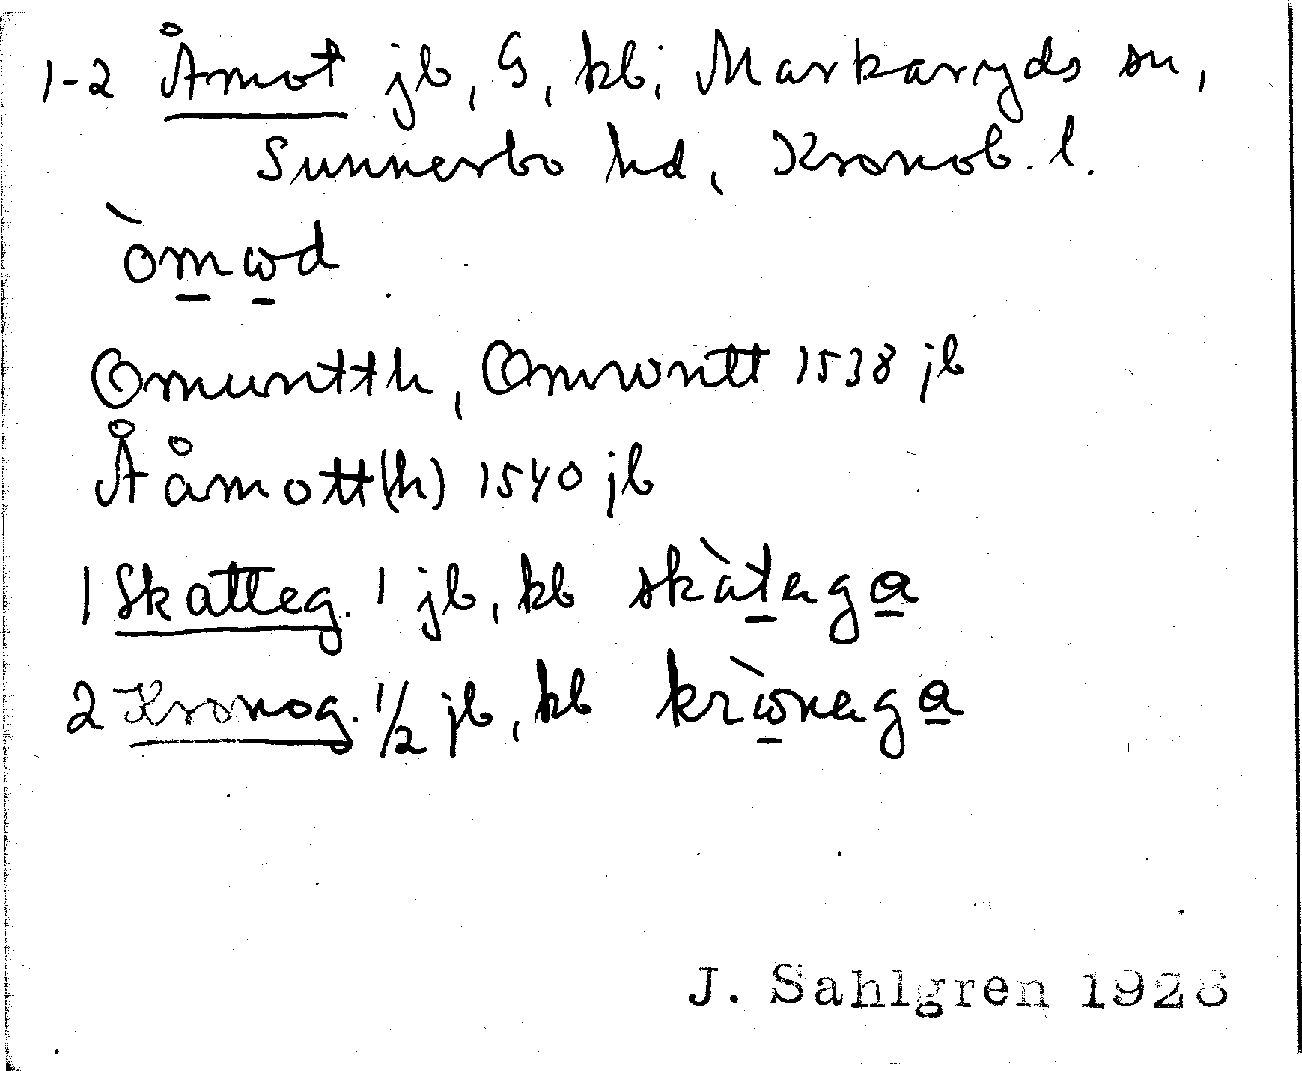 1-2 Åmot jb, G, kb; Markaryds sn,
Sunnerbo hd, Kronob. l.
òmωd
Omuntth, Omwntt 1538 jb
Ååmott(h) 1540 jb
1 Skatteg. 1 jb, kb skàtega
2 Kronog. 1/2 jb, kb krὼnega
J. Sahlgren 1926